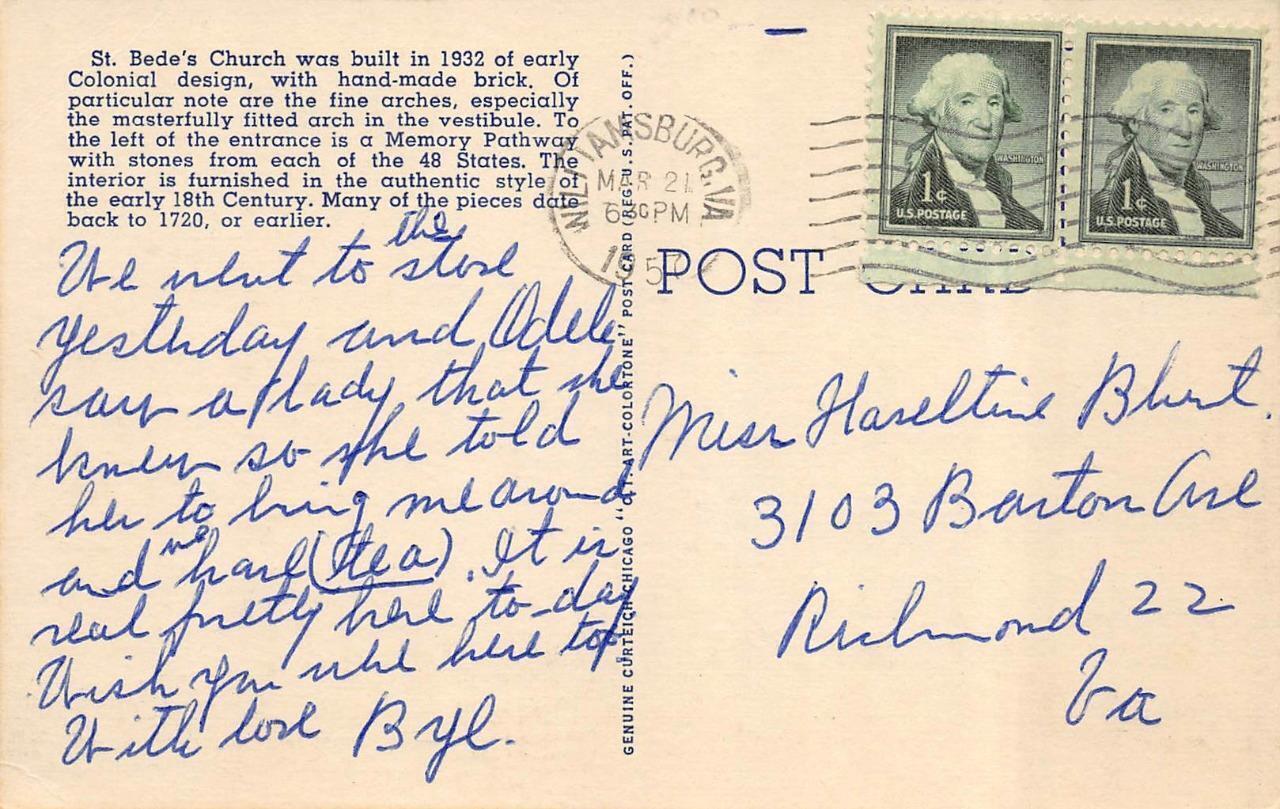 St. Bede's Church was built in 1932 of early
Colonial design, with hand-made brick. Of
particular note are the fine arches, especially
the masterfully fitted arch in the vestibule. To
the left of the entrance is a Memory Pathway
with stones from each of the 48 States. The
interior is furnished in the authentic style of
the early 18th Century. Many of the pieces date
back to 1720, or earlier.
We went to the store
yesterday and Odele
saw a lady that she
knew so she told
her to bring me around
and we have (tea). It is
real pretty here to-day
Wish you were here too
With love Byl.
GENUINE CURTEICH-CHICAGO "C.T. ART-COLORTONE" POST CARD (REG. U.S. PAT. OFF.)
WILLIAMSBURG, VA
MAR 21
630 PM
1957
WASHINGTON
1¢
U.S. POSTAGE
WASHINGTON
1¢
U.S. POSTAGE
POST CARD
Miss Haseltine Blunt.
3103 Barton Ave
Richmond 22
Va